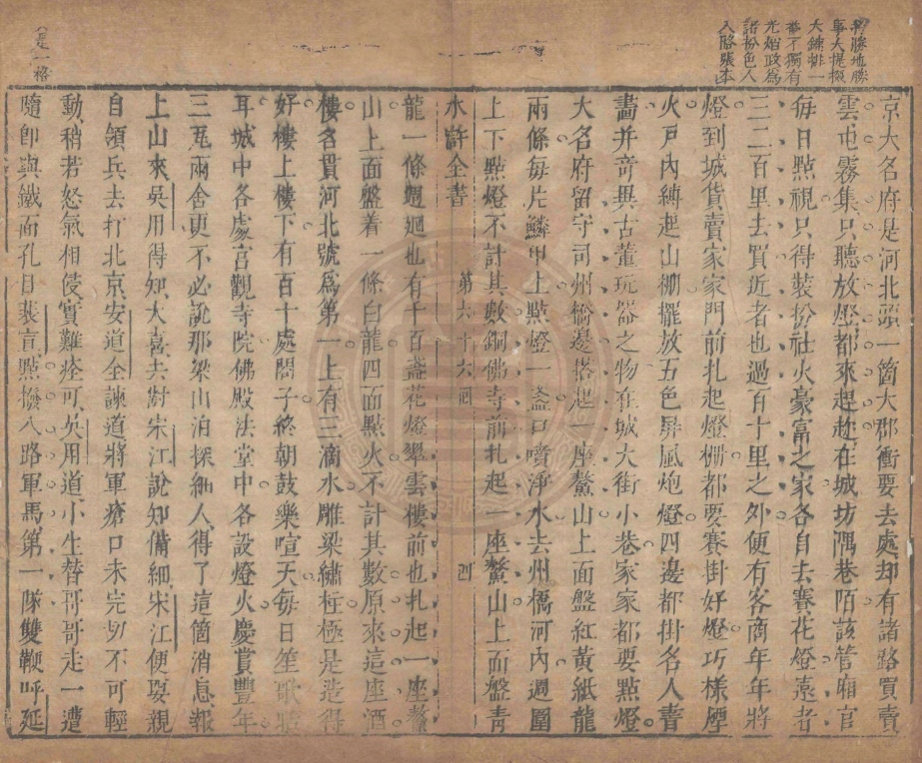 將勝地勝
事大提掇
大鋪排一
番不獨有
光焰政爲
諸扮色人
入隊張本
京大名府是河北頭一箇大郡衝要去處却有諸路買賣
雲屯霧集只聽放燈都來趕趂在城坊隅巷陌該管廂官
每日點視只得裝扮社火豪富之家各自去賽花燈遠者
三二百里去買近者也過百十里之外便有客商年年將
燈到城貨賣家家門前扎起燈棚都要賽掛好燈巧樣煙
火戶內縛起山棚擺放五色屏風炮燈四邊都掛名人書
畫并竒異古董玩器之物在城大街小巷家家都要點燈
大名府留守司州橋邊搭起一座鰲山上面盤紅黃紙龍
兩條每片鱗甲上點燈一盞口噴淨水去州橋河內週圍
上下點燈不計其數銅佛寺前扎起一座鰲山上面盤青
水滸全書
第六十六囘
四
龍一條週迴也有千百盞花燈翠雲樓前也扎起一座鰲
山上面盤着一條白龍四面點火不計其數原來這座酒
樓名貫河北號爲第一上有三滴水雕梁繡柱極是造得
好樓上樓下有百十處閣子終朝鼓樂喧天每日笙歌聒
耳城中各處宫觀寺院佛殿法堂中各設燈火慶賞豐年
三瓦兩舍更不必說那梁山泊探細人得了這箇消息報
上山來吳用得知大喜共對宋江說知備細宋江便要親
自領兵去打北京安道全諫道將軍瘡口未完切不可輕
動稍若怒氣相侵實難痊可吳用道小生替哥哥走一遭
隨卽與鐵面孔目裴宣點撥八路軍馬第一隊雙鞭呼延